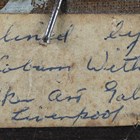 lined by
Coburn With
Art Gal
Liverpool